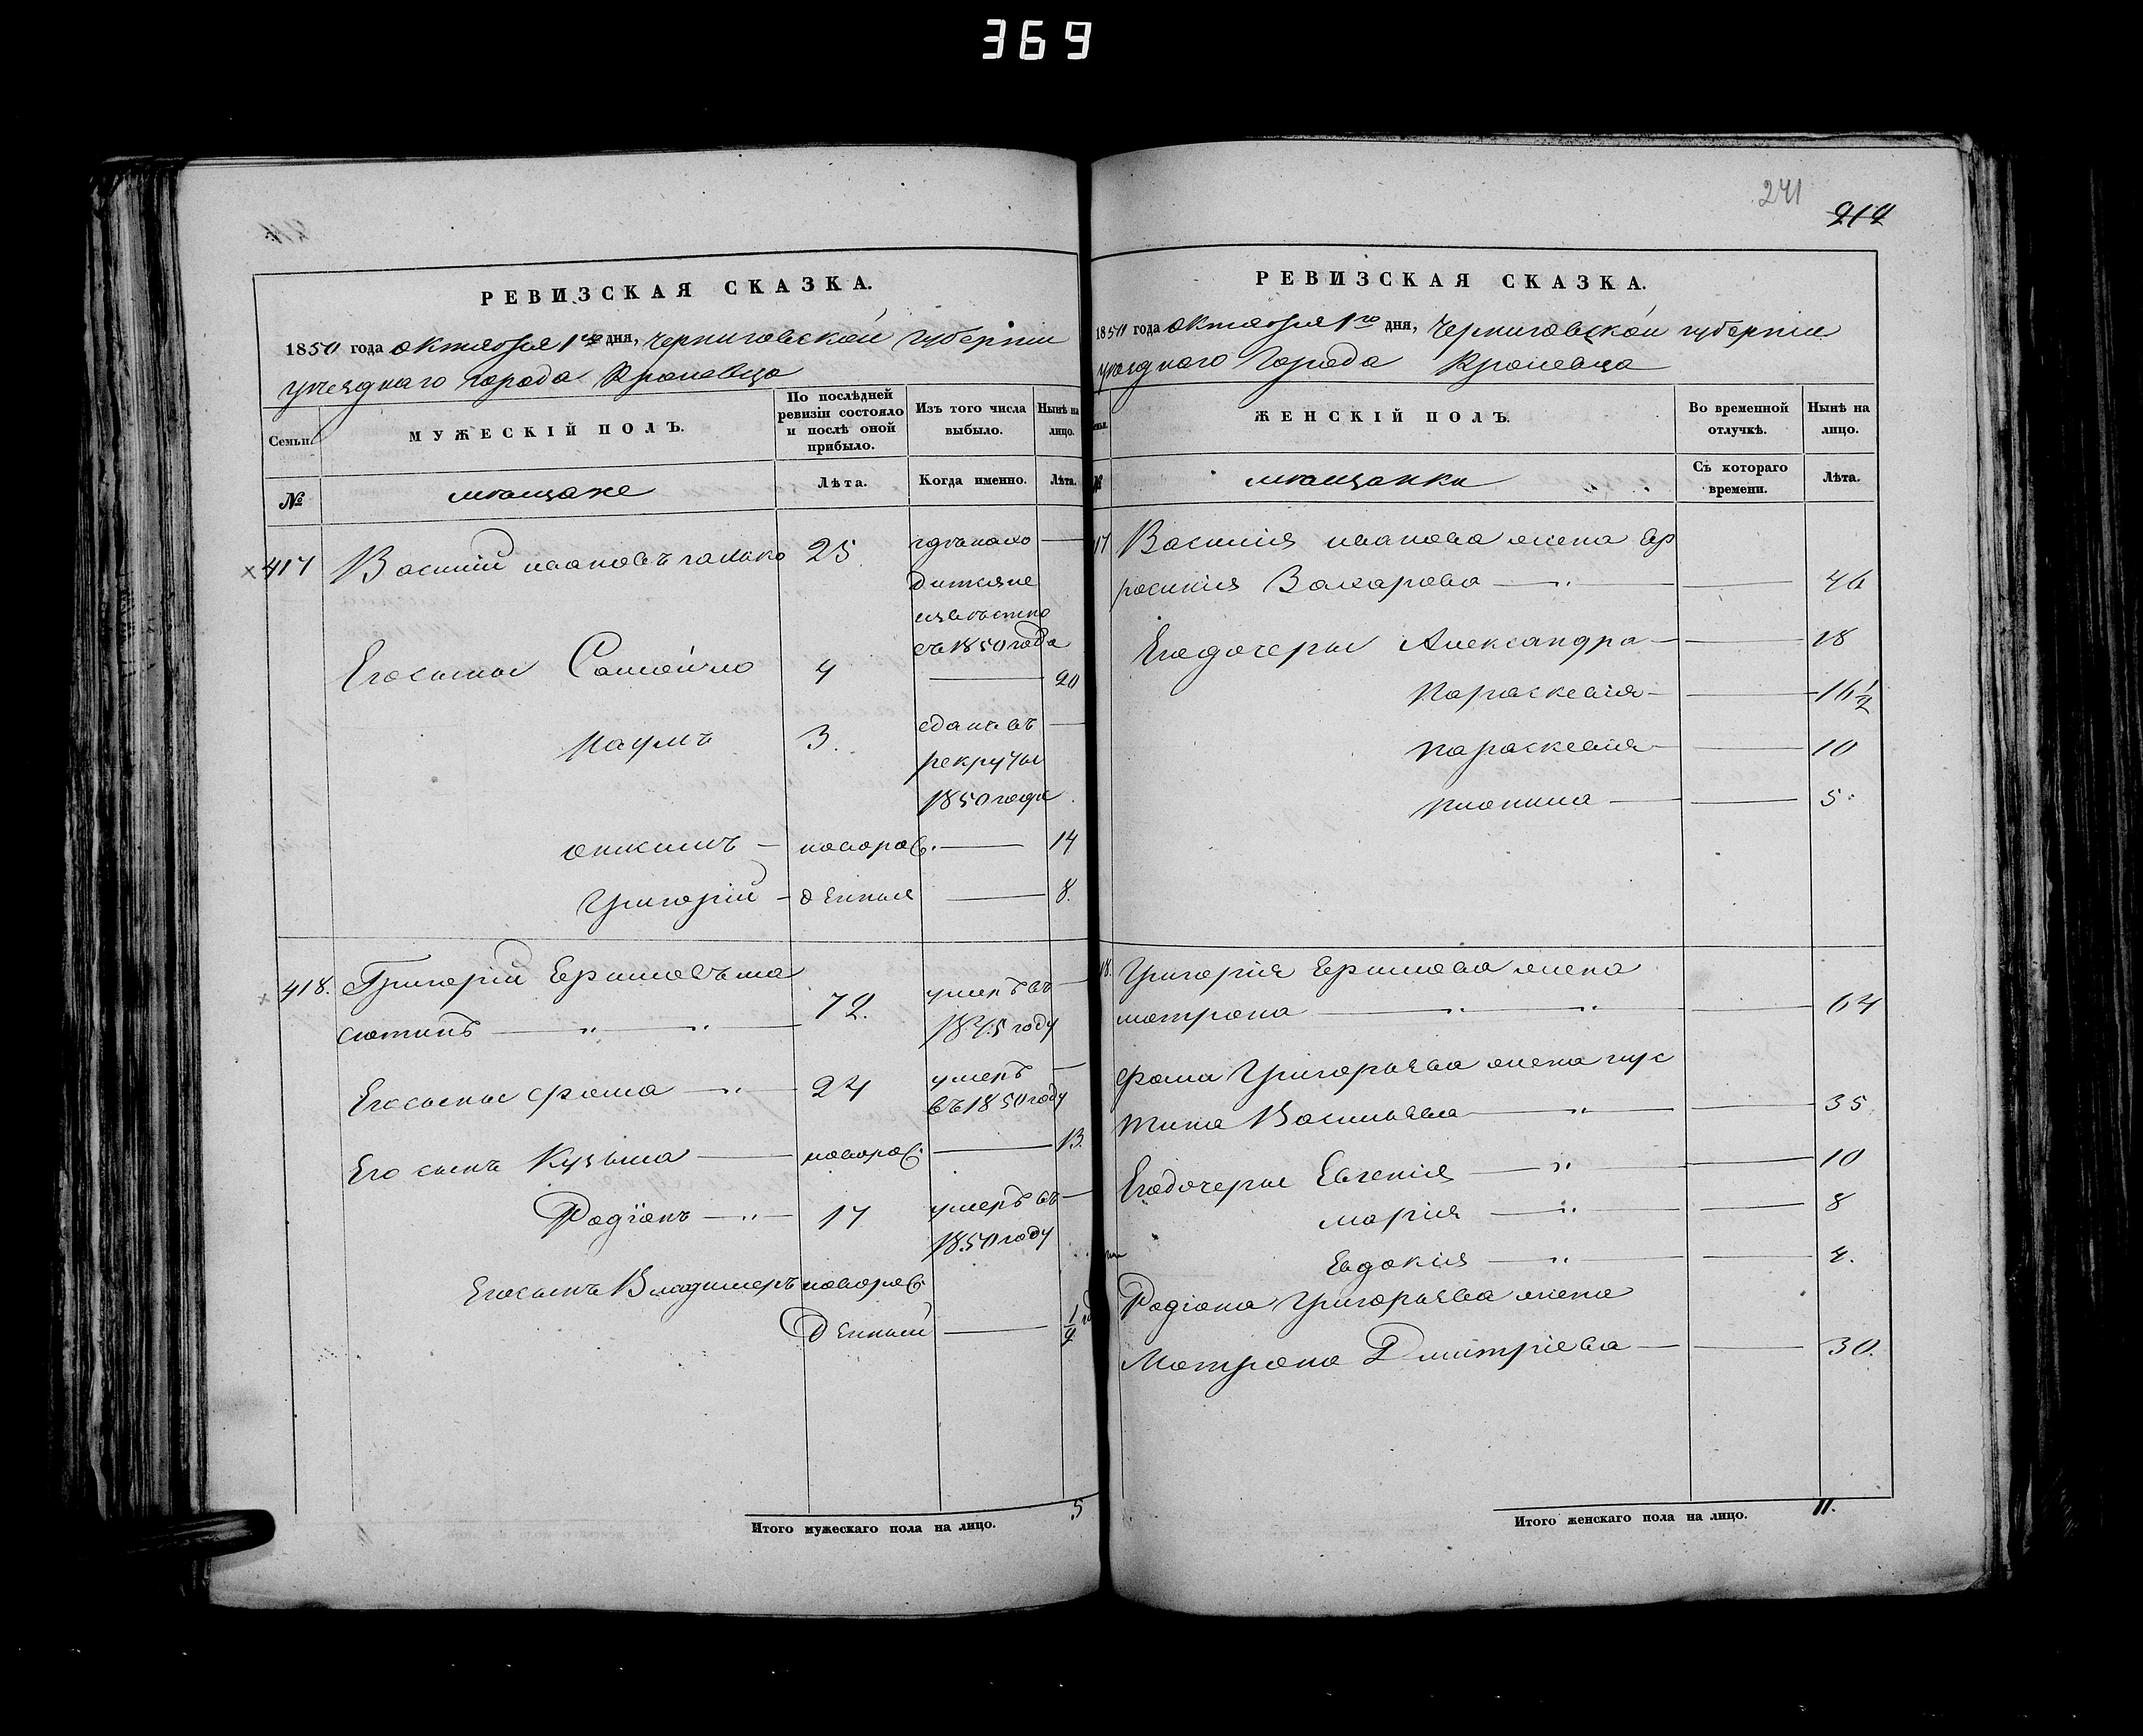 369
241
212
РЕВИЗСКАЯ СКАЗКА.
1850 года октября 1го дня, Черниговской губернии
уѣзднаго города Кролевца
Семьи.
МУЖЕСКІЙ ПОЛЪ.
По послѣдней ревизіи состояло и послѣ оной прибыло.
Изъ того числа выбыло.
Нынѣ на лицо.
№
мѣщане
Лѣта.
Когда именно.
Лѣта.
417 Василий Ивановъ 25
неизвестно
съ 1850 года
Его сыны Самойло 4 20
Наумъ 3. сданъ въ
рекруты
1850 года
Якимъ новоро 14
Григорій денныя 8.
418. Григорій Ефимовъ ма
сютинъ 72. умеръ въ
1845 году
Его сыны Фома 24 умеръ
въ 1850 году
Его сынъ Кузьма новоро 13.
Родіонъ 17 умеръ въ
1850 году
Его сынъ Владимеръ новоро
денный 1/4 го
Итого мужескаго пола на лицо. 5
РЕВИЗСКАЯ СКАЗКА.
1850 года октября 1го дня, Черниговской губернии
уѣзднаго города Кролевца
ЖЕНСКІЙ ПОЛЪ.
Во временной отлучкѣ.
Нынѣ на лицо.
№
мѣщанки
Съ котораго времени.
Лѣта.
17 Василия Иванова жена Ев
росиния Захарова 46
Его дочеры Александра 18
Параскевия 16 1/2
Параскевия 10
5
18. Григория Ефимова жена
Матрона 64
Фомы Григорьева жена Иус
тина Васильева 35
Его дочеры Евгения 10
Мария 8
Евдокия 4.
Родіона Григорьева жена
Матрона Дмитріева 30.
Итого женскаго пола на лицо. 11.